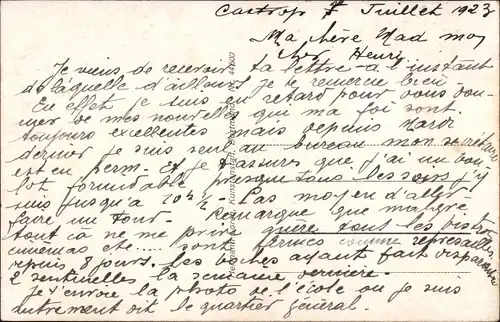 Castrop 7 Juillet 1923
Ma chère Mad mon
cher Henri
Je viens de recevoir ta lettre à l'instant
de laquelle d'ailleurs je te remercie bien
En effet je suis en retard pour vous don-
ner de mes nouvelles qui ma foi sont
toujours excellentes mais depuis Mardi
dernier je suis seul au bureau mon secrétaire
est en perm. Et je t'assures que j'ai un bou-
lot formidable presque tous les soirs j'y
suis jusqu'à 10h½. Pas moyen d'aller
faire un tour. Remarque que malgré
tout çà ne me prive guère tout les bistrots
cinémas etc.... sont fermés comme représailles
depuis 8 jours. les boches ayant fait disparaitre
2 sentinelles la semaine dernière.
Je t'envoie la photo de l'école ou je suis
autrement dit le quartier général.